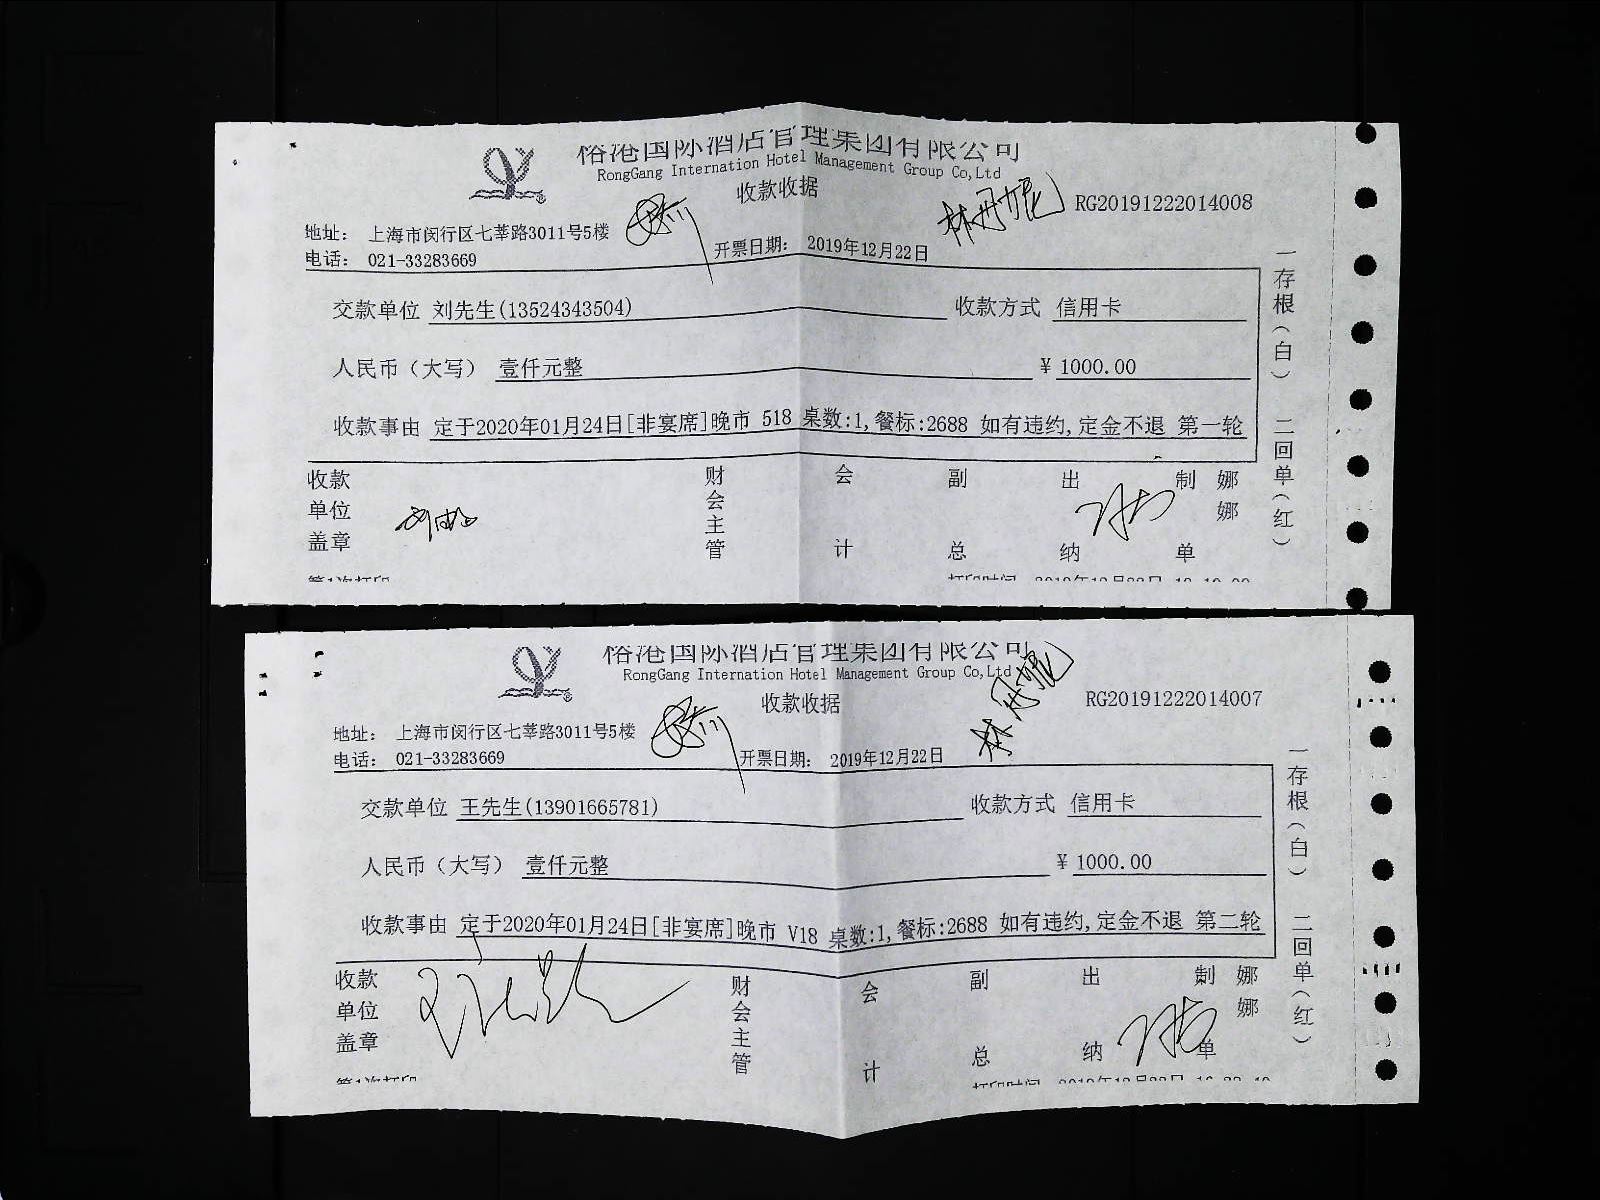 裕港国际酒店管理集团有限公司
RongGang Internation Hotel Management Group Co,Ltd
收款收据
RG20191222014008
地址： 上海市闵行区七莘路3011号5楼
电话： 021-33283669
开票日期： 2019年12月22日
交款单位 刘先生(13524343504) 收款方式 信用卡
人民币（大写） 壹仟元整 ¥ 1000.00
收款事由 定于2020年01月24日[非宴席]晚市 518 桌数:1,餐标:2688 如有违约,定金不退 第一轮
收款单位盖章 财会主管 会计 副总 出纳 制单 娜娜
一存根（白） 二回单（红）
第1次打印
裕港国际酒店管理集团有限公司
RongGang Internation Hotel Management Group Co,Ltd
收款收据
RG20191222014007
地址： 上海市闵行区七莘路3011号5楼
电话： 021-33283669
开票日期： 2019年12月22日
交款单位 王先生(13901665781) 收款方式 信用卡
人民币（大写） 壹仟元整 ¥ 1000.00
收款事由 定于2020年01月24日[非宴席]晚市 V18 桌数:1,餐标:2688 如有违约,定金不退 第二轮
收款单位盖章 财会主管 会计 副总 出纳 制单 娜娜
一存根（白） 二回单（红）
第1次打印